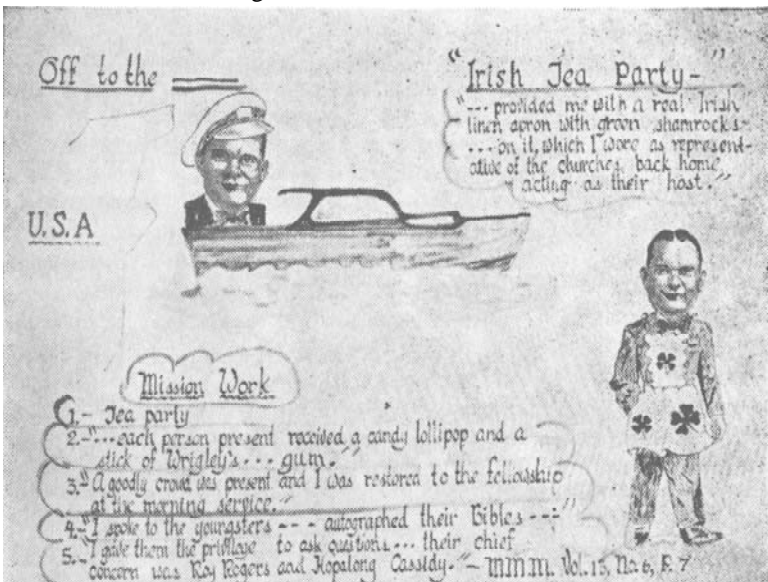 Off to the
U.S.A
"Irish Tea Party-"
"--- provided me with a real Irish
linen apron with green shamrocks--
---on it, which I wore as represent-
ative of the churches back home
acting as their host."
Mission Work
1.- Tea party
2.-"...each person present received a candy lollipop and a
stick of Wrigley's... gum."
3."A goodly crowd was present and I was restored to the fellowship
at the morning service."
4.-"I spoke to the youngsters --- autographed their Bibles --"
5.-"I gave them the privilege to ask questions... their chief
concern was Roy Rogers and Hopalong Cassidy."- M.M.M. Vol. 13, No. 6, P. 7